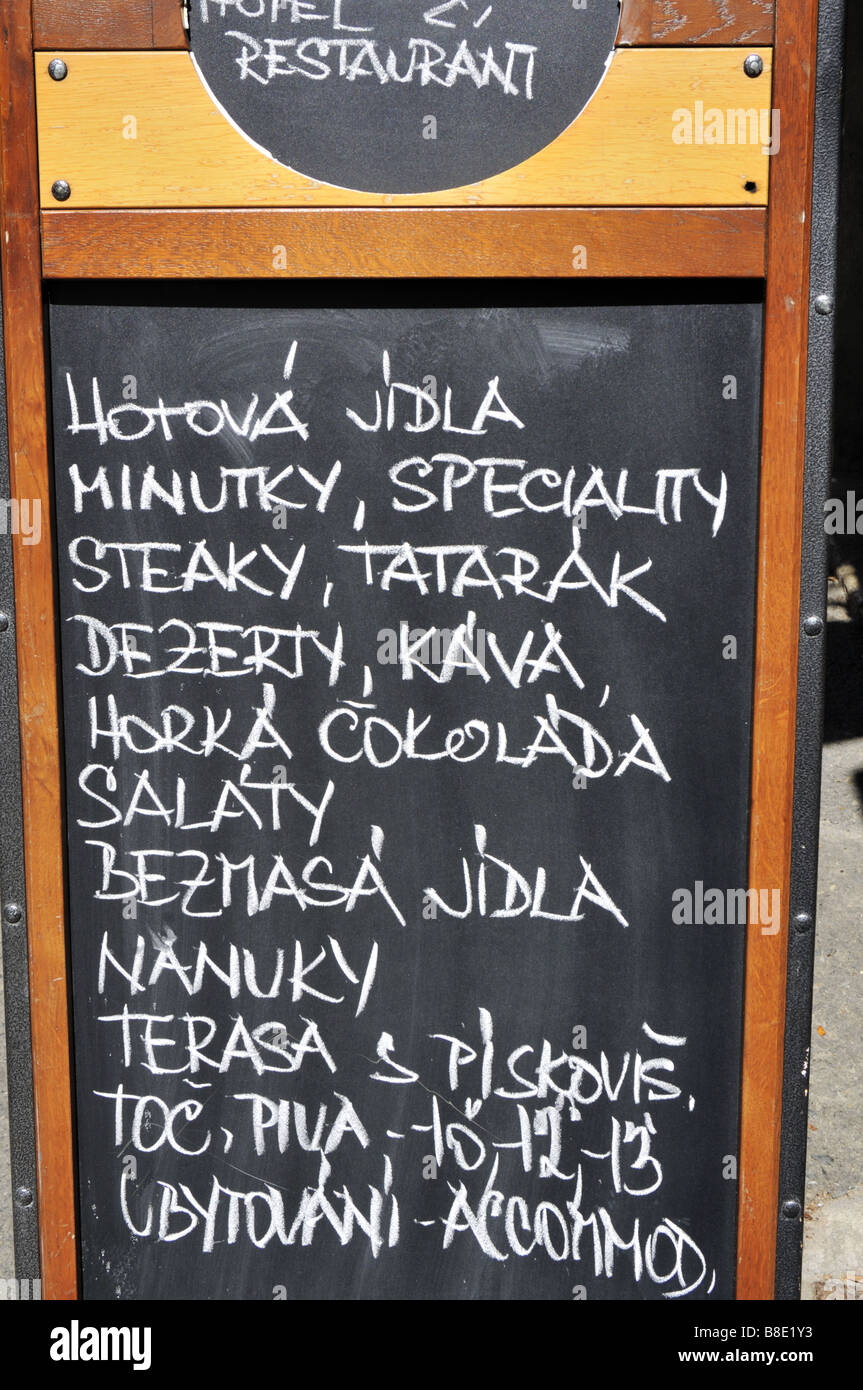 HOTEL
RESTAURANT
HOTOVÁ JÍDLA
MINUTKY, SPECIALITY
STEAKY, TATARÁK
DEZERTY, KÁVA,
HORKÁ ČOKOLÁDA
SALÁTY
BEZMASÁ JÍDLA
NANUKY
TERASA S PÍSKOVIŠ.
TOČ. PIVA -10°-12°-13°
UBYTOVÁNÍ - ACCOMMOD.
alamy
Image ID: B8E1Y3
www.alamy.com